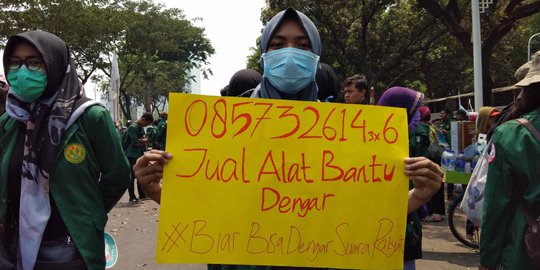 085732614 3x6
Jual Alat Bantu
Dengar
#Biar Bisa Dengar Suara Rakyat